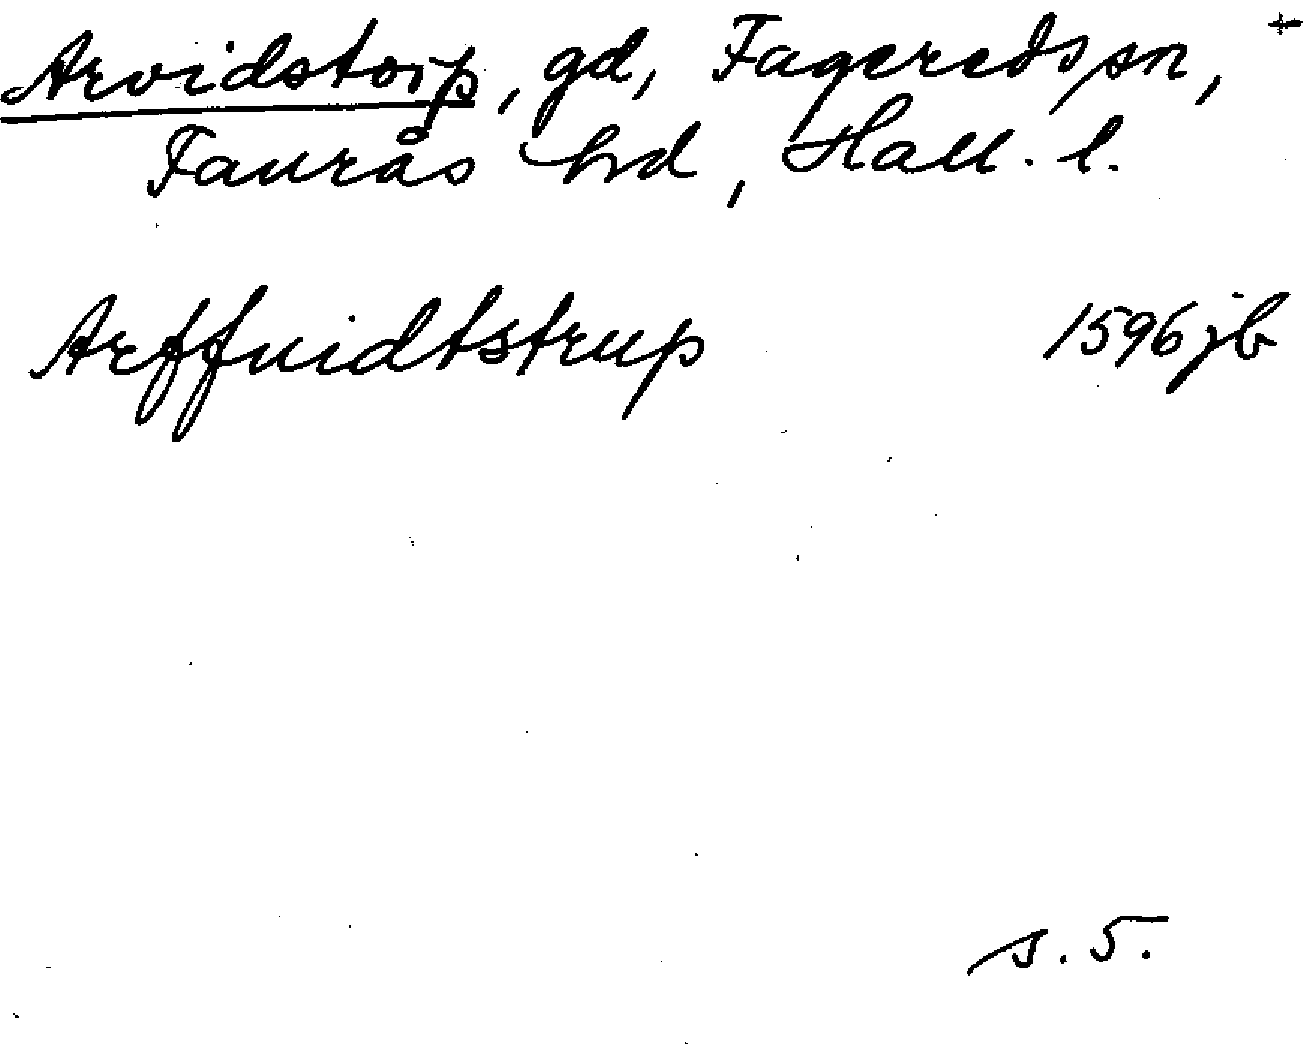 Arvidstorp, gd, Fagereds sn, +
Faurås hd, Hall. l.
Arffuidtstrup 1596 jb
s. 5.